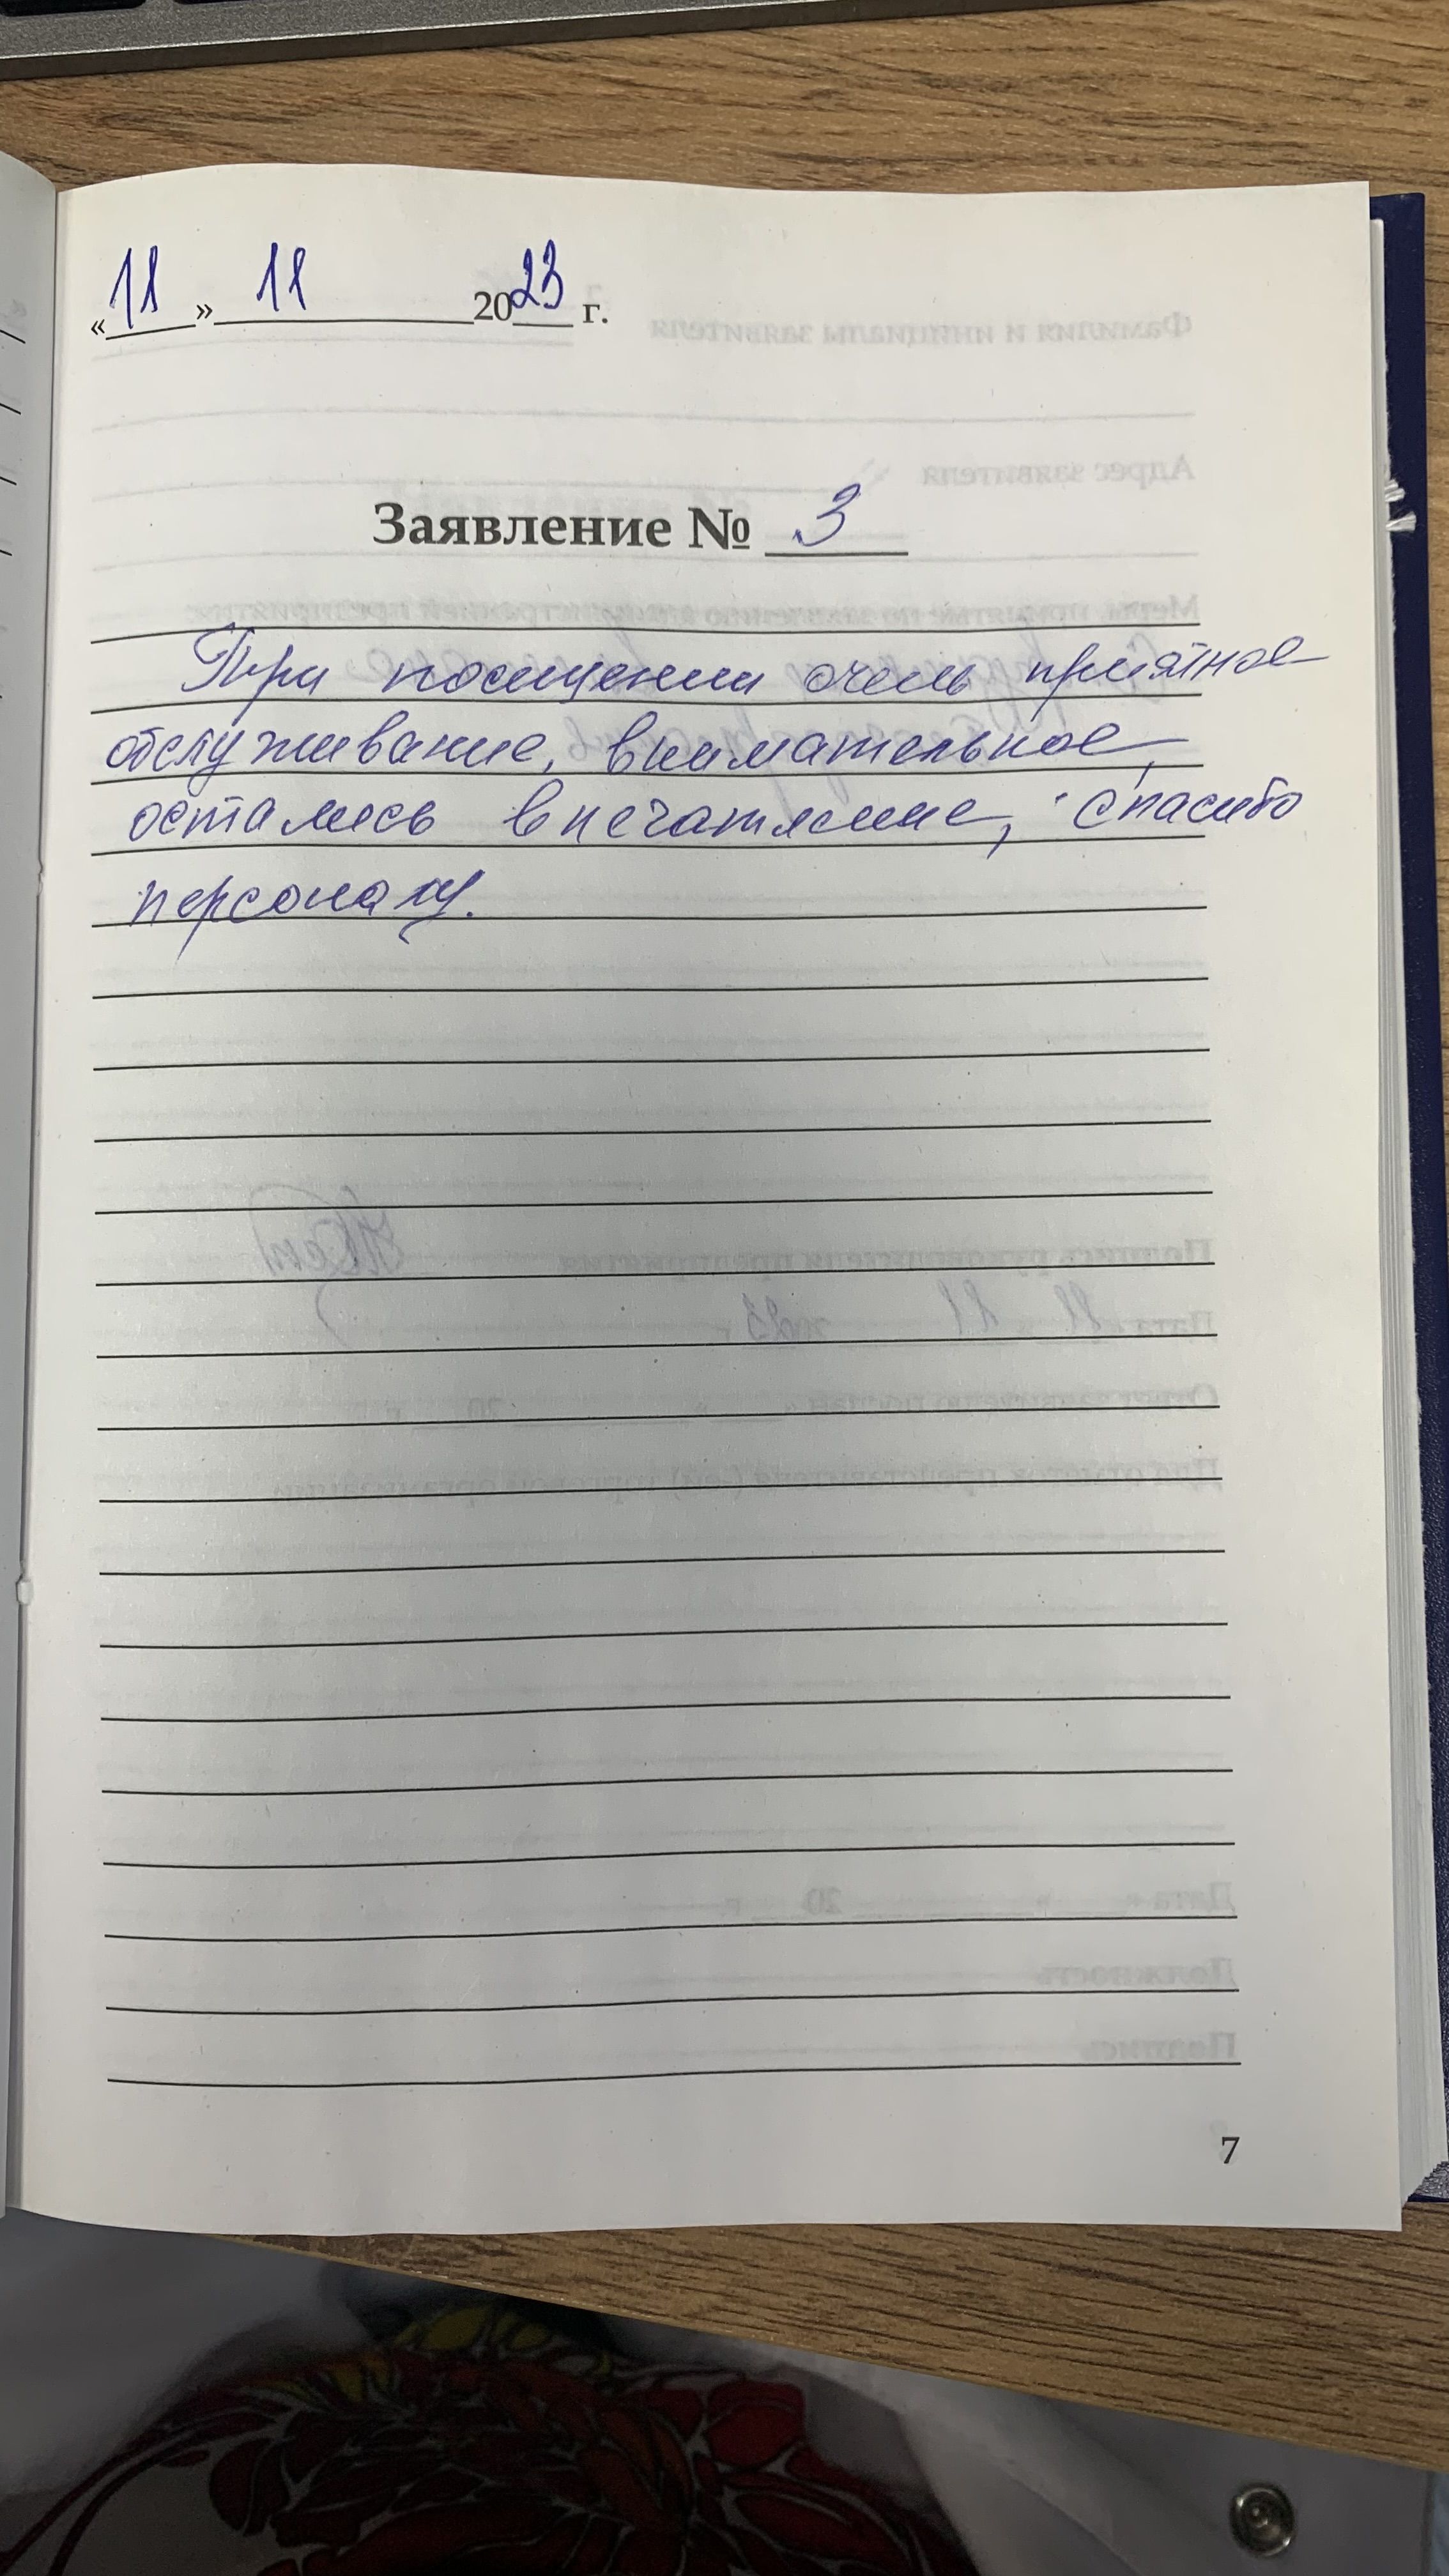 «11» 11 2023 г.
Заявление № 3
При посещении очень приятное
обслуживание, внимательное,
остались впечатление, спасибо
персоналу.
7